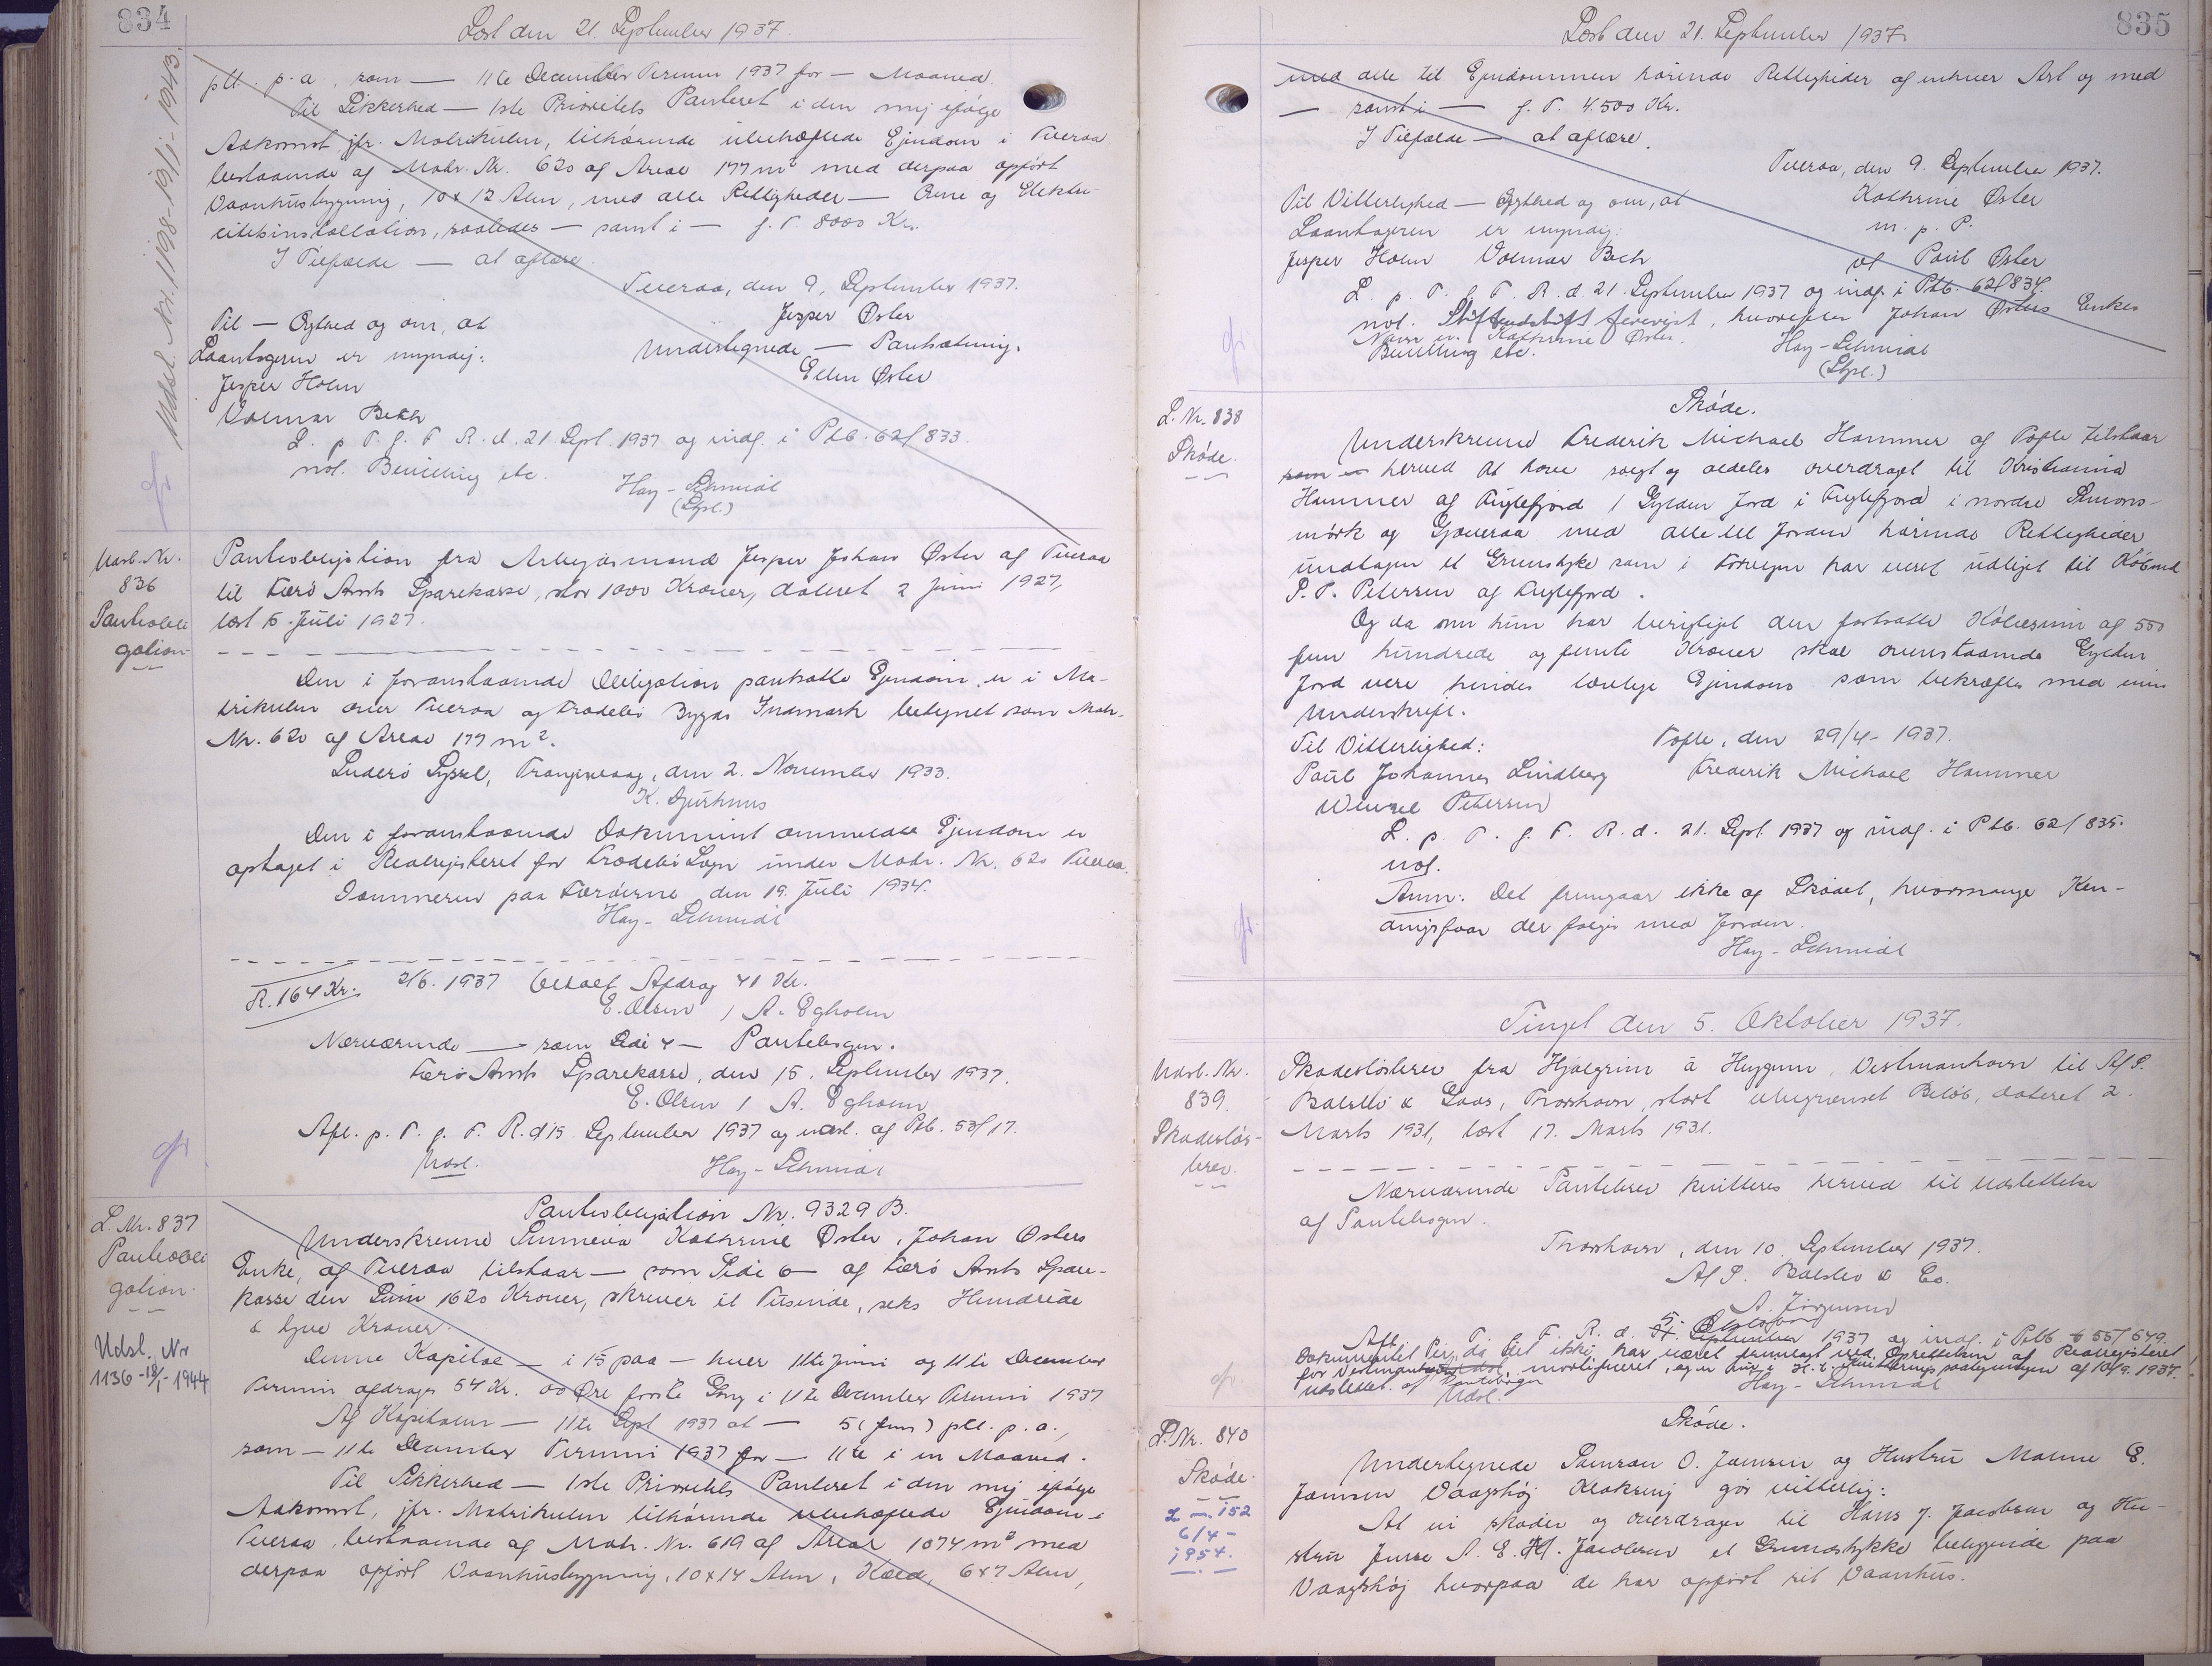 834
Læst den 21. September 1937.
Udsl. Nr. 1198-19/1-1943.
pct. p. a., som — 11te December Termin 1937 for — Maaned.
Til Sikkerhed — 1ste Prioritets Panteret i den mig ifølge
Adkomst, jfr. Matrikulen, tilhørende ubehæftede Ejendom i Tveraa
bestaaende af Matr. Nr. 620 af Areal 177 m² med derpaa opført
Vaanhusbygning, 10 x 12 Alen, med alle Rettigheder — Ovne og Elektri-
citetsinstallation, saaledes — samt i — f. T. 8000 Kr.
I Tilfælde — at aflære.
Tveraa, den 9. September 1937.
Til — Ægthed og om, at
Jesper Øster
Laantageren er myndig:
Undertegnede — Pantsætning.
Jesper Holm
Ellen Øster
Volmar Bech
L. p. T. f. F. R. d. 21. Sept. 1937 og indf. i Ptb. 62/833.
not. Bevilling etc.
Hay-Schmidt
(Stpl.)
Uasl. Nr.
836
Pantobli
gation
Pantobligation fra Arbejdsmand Jesper Johan Øster af Tveraa
til Færø Amts Sparekasse, stor 1000 Kroner, dateret 2 Juni 1927,
læst 5. Juli 1927.
Den i foranstaaende Obligation pantsatte Ejendom er i Ma-
trikulen over Tveraa og Frodebø Bygds Indmark betegnet som Matr.
Nr. 620 af Areal 177 m².
Suderø Syssel, Trangisvaag, den 2. November 1933.
K. Djurhuus
Den i foranstaaende Dokument ommeldte Ejendom er
optaget i Realregisteret for Frodebø Sogn under Matr. Nr. 620 Tveraa.
Dommeren paa Færøerne, den 19. Juli 1934.
Hay-Schmidt
R. 164 Kr.
2/6. 1937 betalt Afdrag 41 Kr.
E. Olsen / A. Egholm
Nærværende — som Side 4 — Pantebogen.
Færø Amts Sparekasse, den 15. September 1937.
E. Olsen / A. Egholm
Afl. p. T. f. F. R. d 15. September 1937 og udsl. af Ptb. 53/17.
Udsl.
Hay-Schmidt
L. Nr. 837
Pantobli
gation.
Udsl. Nr
1136 - 18/1 - 1944
Pantobligation Nr. 9329 B.
Underskrevne Sunneva Kathrine Øster, Johan Østers
Enke, af Tveraa tilstaar — som Side 6 — af Færø Amts Spare-
kasse den Sum 1620 Kroner, skriver et Tusinde, seks Hundrede
& tyve Kroner.
Denne Kapital — i 15 paa — hver 11te Juni og 11te December
Termin afdrages 54 Kr. 00 Øre første Gang i 11te December Termin 1937
Af Kapitalen — 11te Sept 1937 at — 5 (fem) pct. p. a.,
som — 11te December Termin 1937 for — 11te i en Maaned.
Til Sikkerhed — 1ste Prioritets Panteret i den mig ifølge
Adkomst, jfr. Matrikulen tilhørende ubehæftede Ejendom i
Tveraa, bestaaende af Matr. Nr. 619 af Areal 1074 m² med
derpaa opført Vaanhusbygning, 10 x 14 Alen, Kæld. 6x7 Alen,
835
Læst den 21. September 1937.
med alle til Ejendommen hørende Rettigheder af enhver Art og med
— samt i — f. T. 4.500 Kr.
I Tilfælde — at aflære.
Tveraa, den 9. September 1937.
Til Vitterlighed — Ægthed og om, at
Kathrine Øster
Laantageren er myndig:
m. p. P.
Jesper Holm Volmar Bech
af Poul Øster
L. p. T. f. F. R. d. 21. September 1937 og indf. i Ptb. 62/834.
not. Skiftendskift forevist, hvorefter Johan Østers Enkes
Navn er: Kathrine Øster.
Bevilling etc.
Hay-Schmidt
(Stpl.)
L. Nr. 838
Skøde.
Skøde.
Underskrevne Frederik Michael Hammer af Tofte tilstaar
herved at have solgt og aldeles overdraget til Kristianna
Hammer af Fuglefjord 1 Gylden Jord i Fuglefjord i nordre Simons-
mørk og Gjøveraa med alle til Jorden hørende Rettigheder
undtagen et Grunstyke som i Forvejen har veret udligt til Købmd
S. P. Petersen af Fuglefjord.
Og da nu hun har berigtiget den fortsatte Købesum af 550
fem hundrede og femti Kroner skal ovenstaaende Gylden
Jord vere hendes lovlige Ejendom som bekræftes med min
Underskrift.
Til Vitterlighed:
Tofte, den 29/4 - 1937.
Paul Johannes Lindberg
Frederik Michael Hammer
Wenzel Petersen
L. p. T. f. F. R. d. 21. Sept 1937 og indf. i Ptb. 62/835.
not.
Anm: Det fremgaar ikke af Skødet, hvormange Ken-
dingsfaar der følger med Jorden.
Hay-Schmidt
Tinget den 5. Oktober 1937.
Uasl. Nr.
839.
Skadesløs-
brev.
Skadesløsbrev fra Hjalgrim á Heygum, Vestmanhavn til A/S.
Balslev & Co's, Thorshavn, stort ubegrænset Beløb, dateret 2.
Marts 1931, læst 17. Marts 1931.
Nærværende Pantebrev kvitteres herved til Udslettelse
af Pantebogen.
Thorshavn, den 10. September 1937.
A/S. Balslev & Co.
A. Jørgensen
5. Oktober
Afl. p. T. f. F. R. d. 21. September 1937 og indf. i Ptb 55/579.
Dokumentet er, da det ikke har været fremlagt ved Oprettelsen af Realregisteret
for Vestmanhavn, mortificeret, og er kun i H. t. Kvitteringspaategningen af 10/9. 1937.
udslettet af Pantebogen
Udsl.
Hay-Schmidt
L. Nr. 840
Skøde.
L. nr. 152
6/4 -
1954.
Skøde.
Undertegnede Samson O. Jensen og Hustru Malene E.
Jensen Vaagshøj Klaksvig gør vitterlig:
At vi skøder og overdrager til Hans J. Jacobsen og Hu-
stru Jensse A. E. M. Jacobsen et Grundstykke beliggende paa
Vaagshøj hvorpaa de har opført sit Vaanhus.